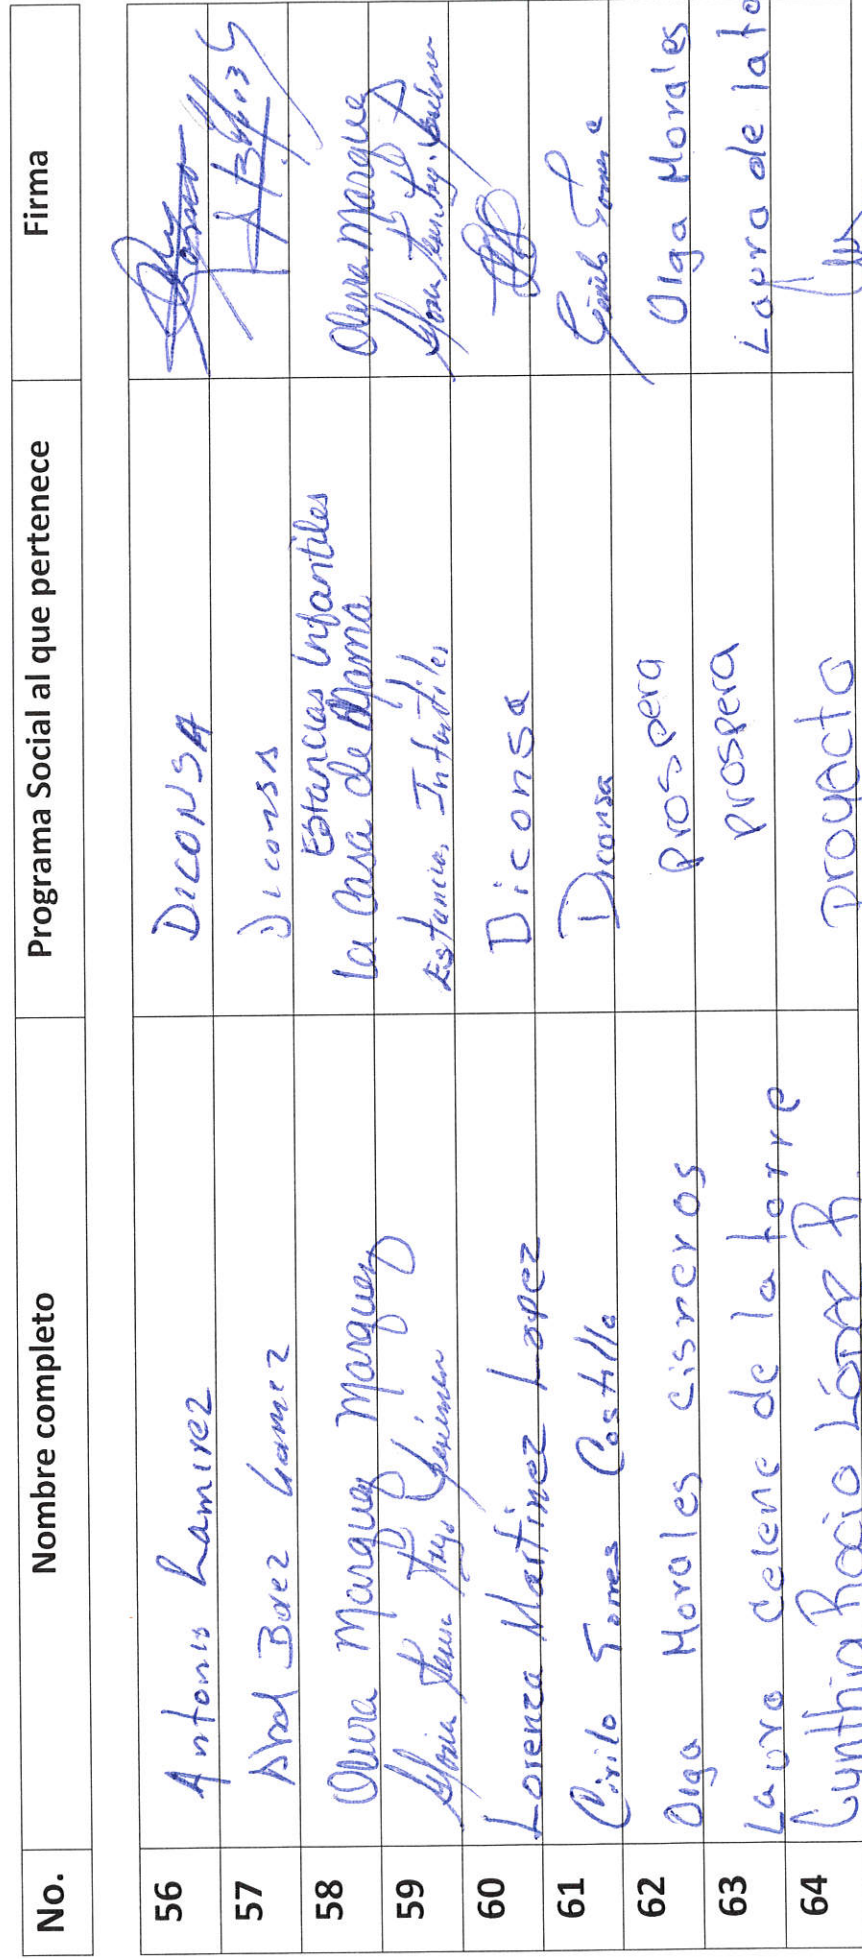 No. Nombre completo Programa Social al que pertenece Firma
56 Antonio Ramirez DICONSA
57 Abel Baez Gamez Diconsa
58 Olivia Marquez Marquez Estancias Infantiles
La Casa de Mamá Marque
59 Gloria Trejo Jiménez Estancias Infantiles
60 Lorenza Martinez Lopez Diconsa
61 Cirilo Torres Castillo Diconsa Cirilo Torres c
62 Olga Morales cisneros prospera Olga Morales
63 Laura celene de la torre prospera Laura de la to
64 Cynthia Rocio López R. proyacto